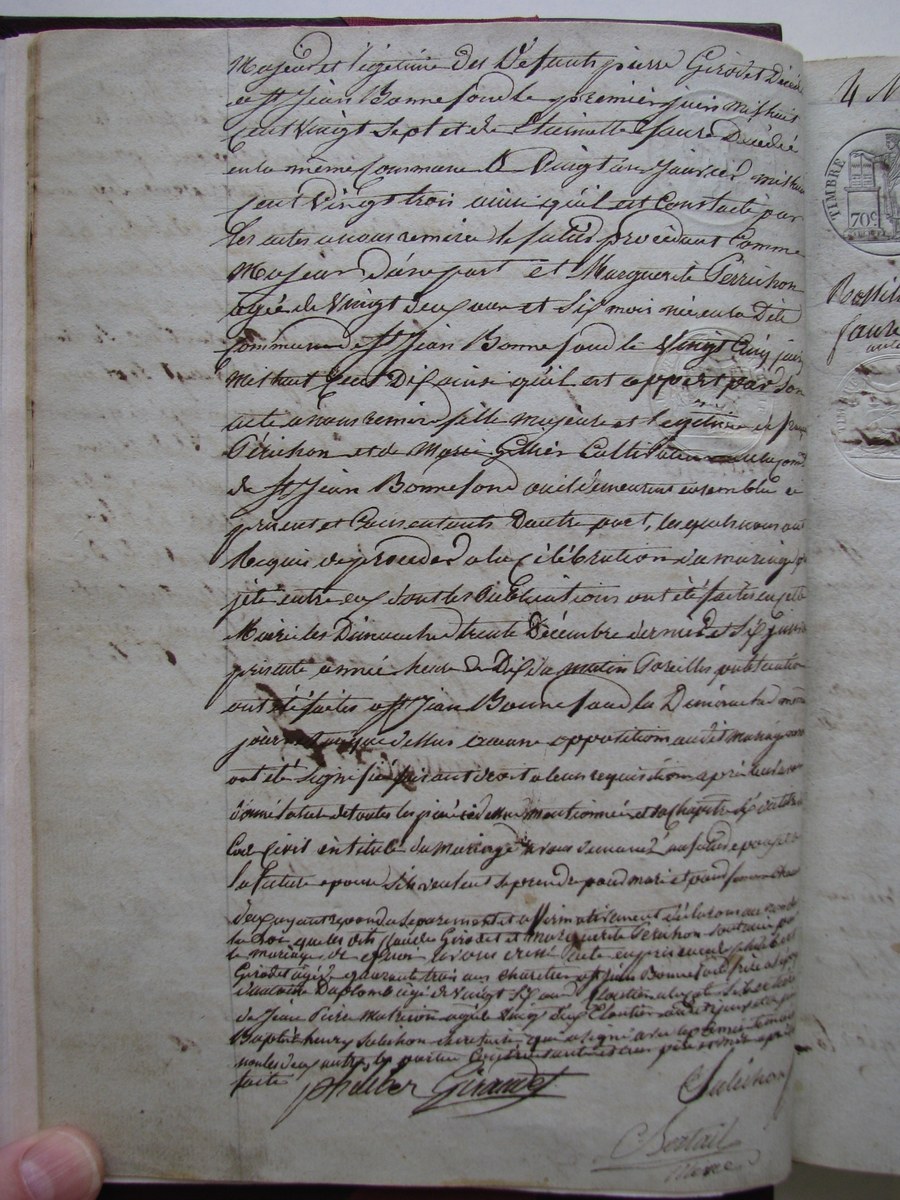 Majeur et legitime des Défunts pierre Girodet Décédé
a St Jean Bonnefond le premier juin mil huit
cent Vingt Sept et de Etiennette faure Décédée
en la même Commune le Vingt un Janvier mil huit
cent Vingt trois ainsi qu'il est Constaté par
les actes a nous remis le futur procédant Comme
Majeur d'une part et Marguerite Perrichon
agée de Vingt deux ans et Six mois née en la Dite
Commune de St Jean Bonnefond le Vingt Cinq juin
Mil huit Cent Dix ainsi qu'il est appert par Son
acte a nous remis fille majeure et legitime de
Périchon et de Marie Cultivateurs
de St Jean Bonnefond ou ils demeurent ensemble ici
présent et Consentants Dautre part, lesquels nous ont
Requis de procéder a la Célébration du mariage
jeté entre eux dont les Publications ont été faites en cette
Mairie les Dimanche trente Décembre dernier et Six Janvier
présente année heure de Dix du matin Pareilles publication
ont été faites a St Jean Bonnefond les Dimanche même
jour et que dessus aucune opposition audit mariage
ont été Signifié faisant droit a leur requisition après leur avoir
donné lecture de toutes les pièces dessus mentionnées et du Chapitre Six du titre du
Code Civil intitulé du Mariage avons demandé au futur époux et a
la future epouse Sils veulent Se prendre pour mari et pour femme Chacun
d'eux ayant repondu Separement et affirmativement déclarons au nom de
la Loi que les dits Claude Girodet et marguerite Perichon Sont unis par
le mariage de quoi avons dressé acte en présence de philibert
Girodet agé de quarante trois ans charetier a St Jean Bonnefond frère a l'époux
d'antoine Duplomb agé de Vingt Six ans
de Jean Pierre Matricon agé de Vingt Six
Baptiste henry Salichon qui a signé avec le premier témoin
non les deux autres les parties
faite
philiber Giraudet
Salichon
Bertail
Maire
4 N
TIMBRE
70c
faure